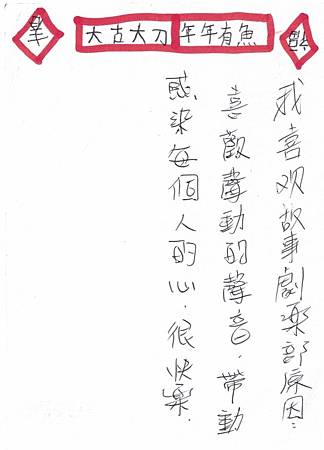 大古大刀 年年有魚
我喜欢故事劇樂部原因:
喜歡聲動的聲音,帶動
感染每個人的心,很快樂.